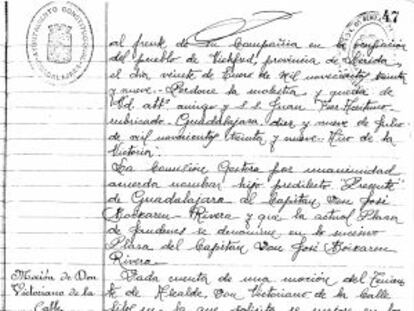 47
AYUNTAMIENTO CONSTITUCIONAL
GUADALAJARA
al frente de su Compañia en la
del pueblo de provincia de Lerida,
el dia veinte de Enero de mil novecientos treinta
y nueve. Perdone la molestia y queda de
Vd. attº amigo y s.s. Juan
rubricado - Guadalajara, diez y nueve de Julio
de mil novecientos treinta y nueve - Año de la
Victoria".
La Comisión Gestora por unanimidad
acuerda nombrar hijo predilecto "Presente"
de Guadalajara al Capitan Don José
Boixareu Rivera y que la actual Plaza
de se denomine en lo sucesivo
Plaza del Capitan Don José Boixareu
Rivera.
Moción de Don
Victoriano de la
Calle
Dada cuenta de una moción del Tenien-
te de Alcalde, Don Victoriano de la Calle
en la que solicita se en los